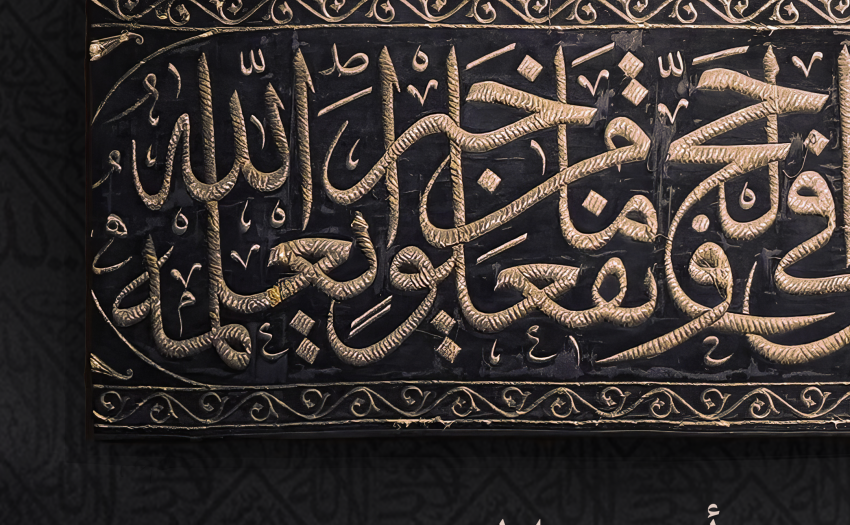 في الحج وما تفعلوا من خير يعلمه الله